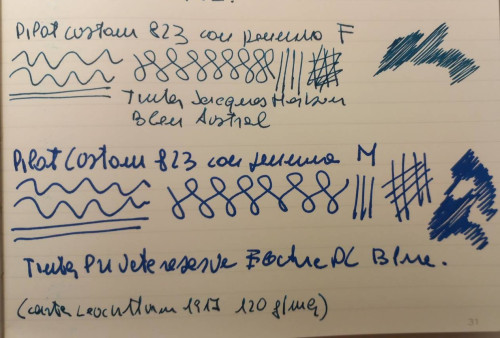 Pilot Custom 823 con pennino F
Tinta Jacques Herbin
Bleu Austral
Pilot Custom 823 con pennino M
Tinta Private reserve Electric DC Blue.
(carta Leuchtturm 1917 120 g/mq)
31